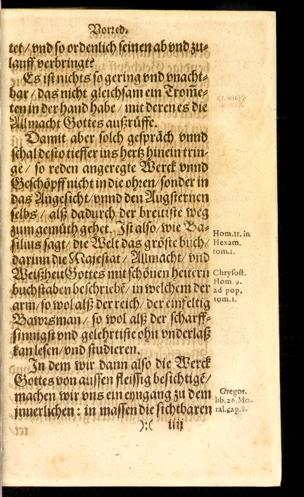 Vorred.
tet / vnd so ordenlich seinen ab vnd zu-
lauff verbringt?
Es ist nichts so gering vnd vnacht-
bar / das nicht gleichsam ein Trom̃e-
ten in der hand habe / mit deren es die
Allmacht Gottes außrüffe.
Damit aber solch gespräch vnnd
schal desto tieffer ins hertz hinein trin-
ge / so reden angeregte Werck vnnd
Geschöpff nicht in die ohren / sonder in
das Angesicht / vnnd den Augsternen
selbs / alß dadurch der breitiste weg
zum gemüth gehet. Ist also / wie Ba-
silius sagt / die Welt das gröste buch /
Hom. 11. in
Hexam.
tom. 1.
darinn die Majestat / Allmacht / vnd
Weißheit Gottes mit schönen heitern
buchstaben beschriebẽ / in welchem der
Chrysost.
Hom. 9.
ad pop.
tom. 1.
arm / so wol alß der reich / der einfeltig
Bawrsman / so wol alß der scharff-
sinnigst vnd gelehrtiste ohn vnderlaß
kan lesen / vnd studieren.
In dem wir dann also die Werck
Gottes von aussen fleissig besichtigẽ /
machen wir vns ein eyngang zu dem
innerlichen : in massen die sichtbaren
Gregor.
lib. 26. Mo-
ral. cap. 8.
):( iiij